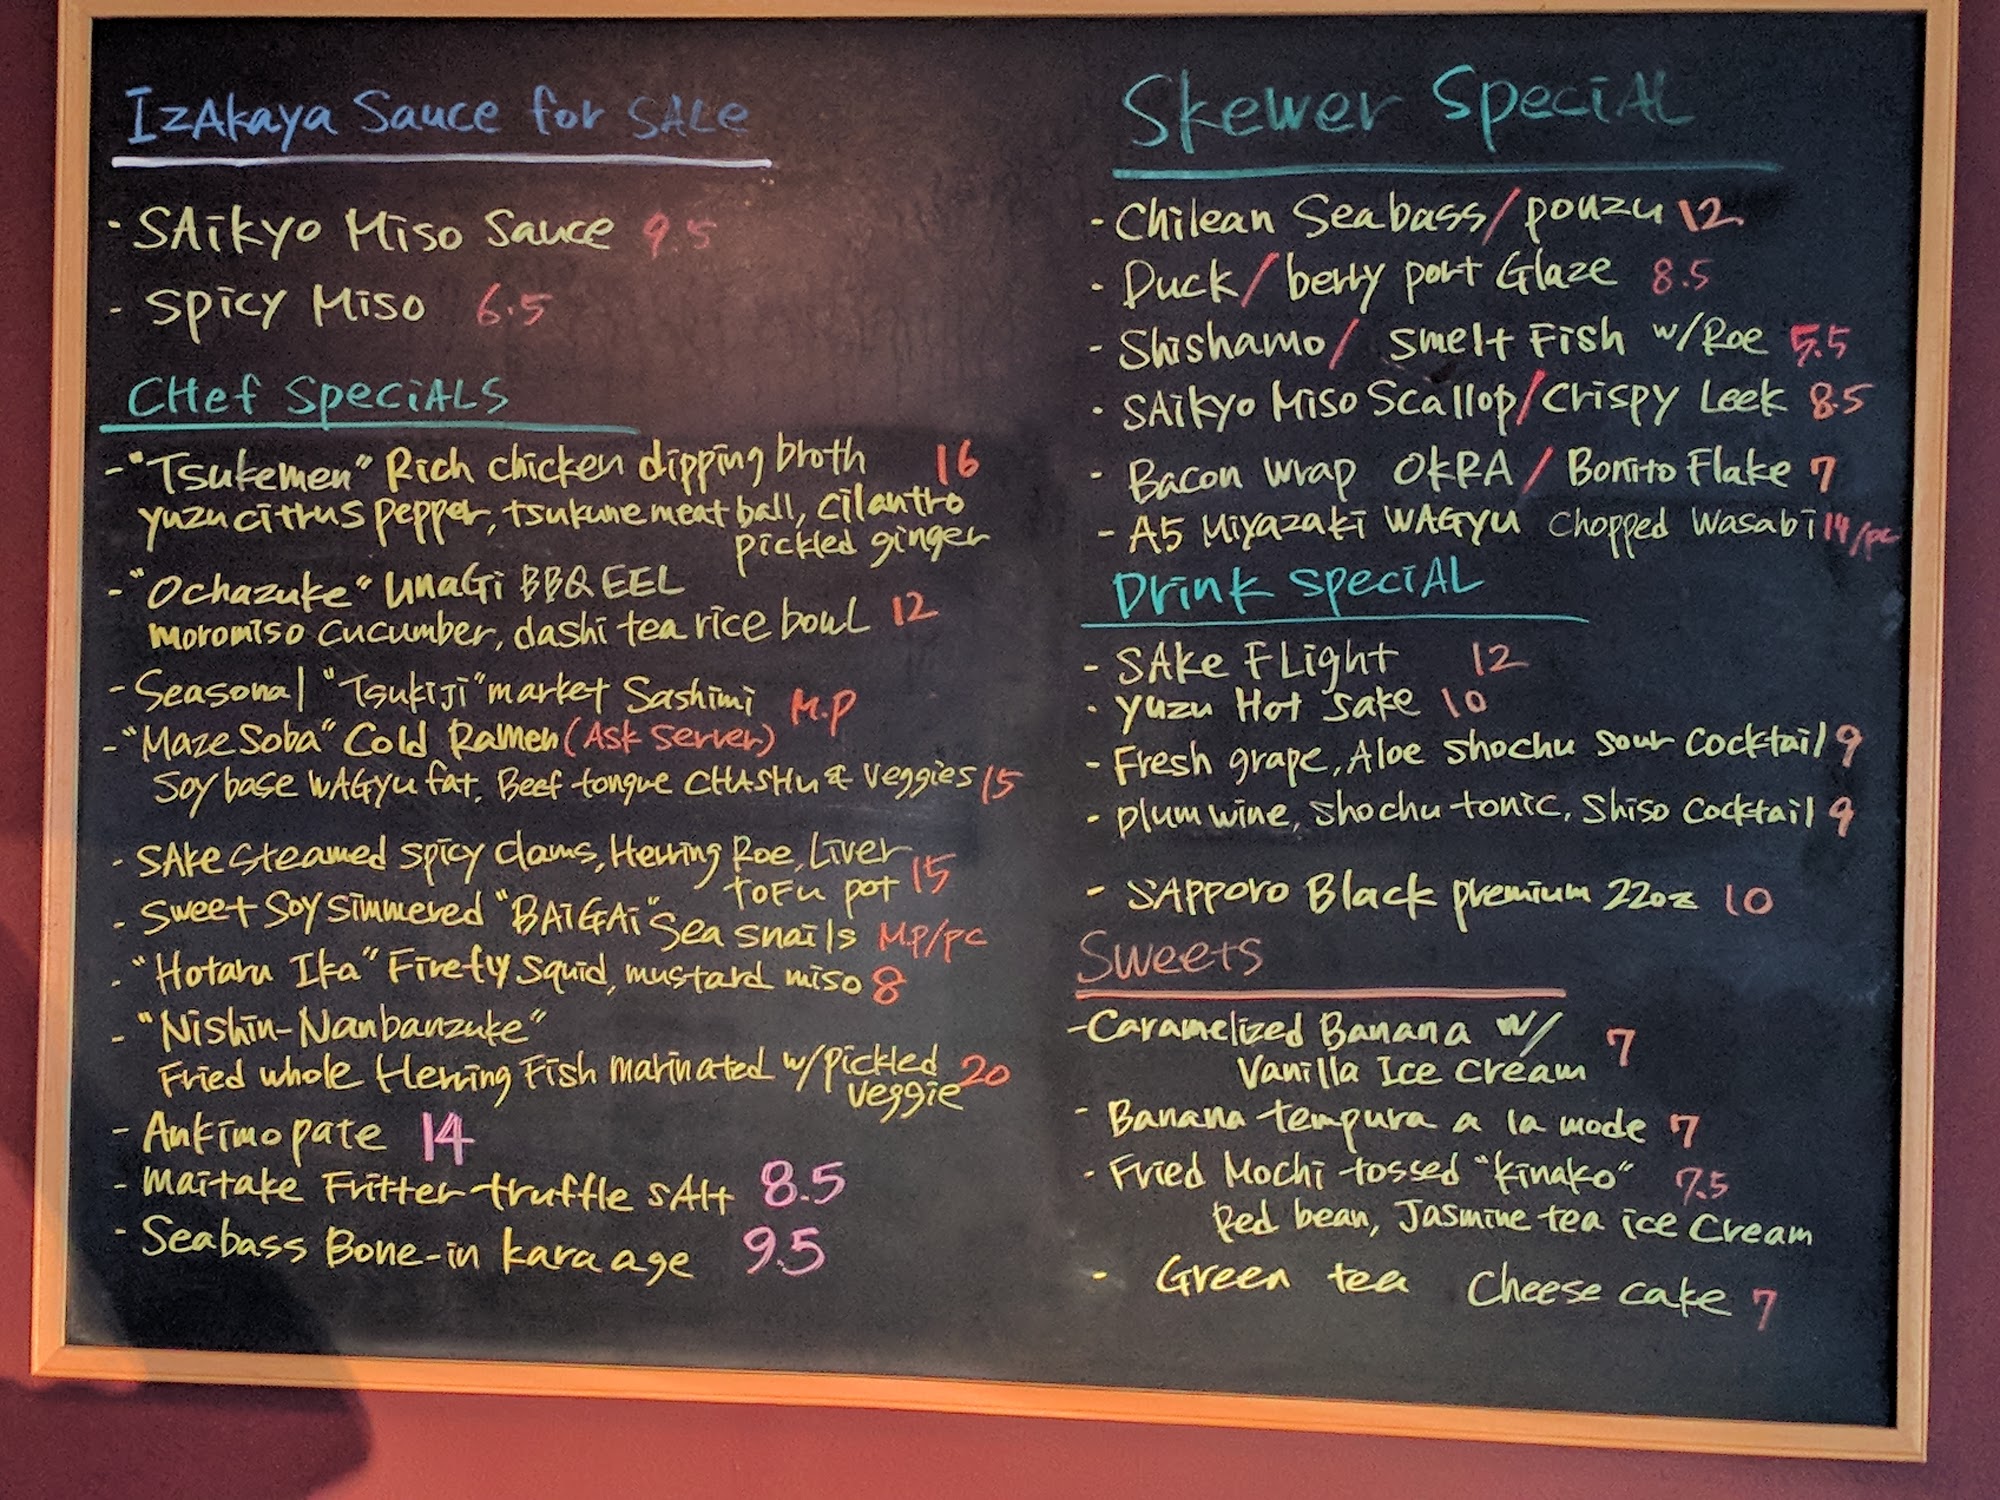 IzAkaya Sauce for SALe
- SAikyo Miso Sauce 9.5
- Spicy Miso 6.5
CHef SpeciALS
- "Tsukemen" Rich chicken dipping broth 16
yuzu citrus pepper, tsukune meat ball, cilantro
pickled ginger
- "Ochazuke" UnaGi BBQ EEL
moromiso cucumber, dashi tea rice bowl 12
- Seasonal "Tsukiji" market Sashimi M.P
- "Maze Soba" Cold Ramen (Ask Server)
Soy base WAGyu fat, Beef tongue CHASHu & Veggies 15
- SAke steamed spicy clams, Herring Roe, Liver
toFu pot 15
- Sweet Soy simmered "BAiGAi" Sea snails M.P/pc
- "Hotaru Ika" Firefly squid, mustard miso 8
- "Nishin-Nanbanzuke"
Fried whole Herring Fish marinated w/pickled
veggie 20
- Ankimo pate 14
- Maitake Fritter truffle sAlt 8.5
- Seabass Bone-in kara age 9.5
Skewer SpeciAL
- Chilean Seabass/ponzu 12
- Duck/berry port Glaze 8.5
- Shishamo/ Smelt Fish w/Roe 5.5
- SAikyo Miso Scallop/Crispy Leek 8.5
- Bacon wrap OKRA/ Bonito Flake 7
- A5 Miyazaki WAGyu Chopped Wasabi 14/pc
Drink SpeciAL
- SAke FLight 12
- Yuzu Hot Sake 10
- Fresh grape, Aloe shochu sour Cocktail 9
- plum wine, Shochu tonic, Shiso Cocktail 9
- SApporo Black premium 22oz 10
Sweets
- Caramelized Banana w/ 7
Vanilla Ice Cream
- Banana tempura a la mode 7
- Fried Mochi tossed "kinako" 7.5
Red bean, Jasmine tea ice Cream
- Green tea Cheese cake 7